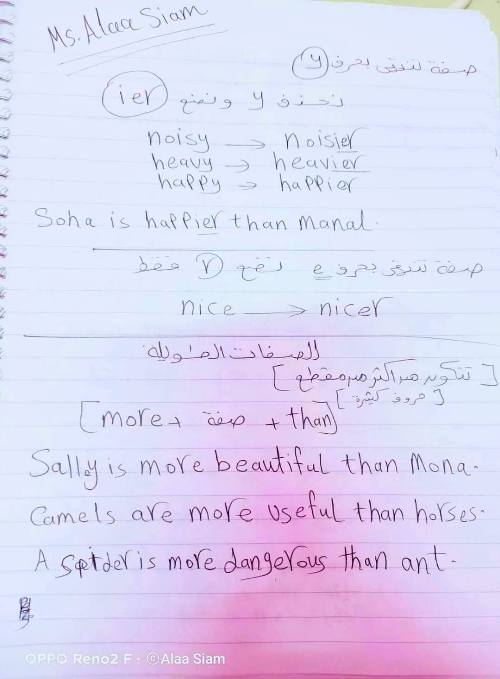 Ms. Alaa Siam
صفة تنتهى بحرف y
نحذف y ونضع ier
noisy → noisier
heavy → heavier
happy → happier
Soha is happier than Manal.
صفة تنتهى بحرف e نضع r فقط
nice → nicer
الصفات الطويلة
[تتكون من اكثر من مقطع]
[حروف كثيرة]
[more + صفة + than]
Sally is more beautiful than Mona.
Camels are more useful than horses.
A spider is more dangerous than ant.
OPPO Reno2 F · ©Alaa Siam